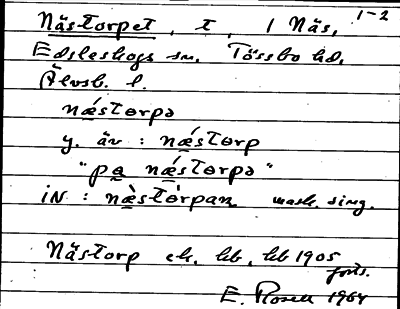 1-2
Nästorpet, t, / Näs,
Edsleskogs sn. Tössbo hd.
Älvsb. l.
nǽstɵrpə
y. äv: nǽstɵrp
"pa nǽstɵrpə"
iN: næ̀stɵ̀rpan mask. sing.
Nästorp ek. kb, kb 1905
forts.
E. Rosell 1964